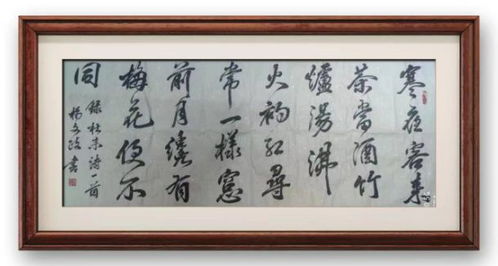 寒夜客来
茶當酒竹
爐湯沸
火初紅尋
常一樣窓
前月纔有
梅花便不
同
錄杜耒詩一首